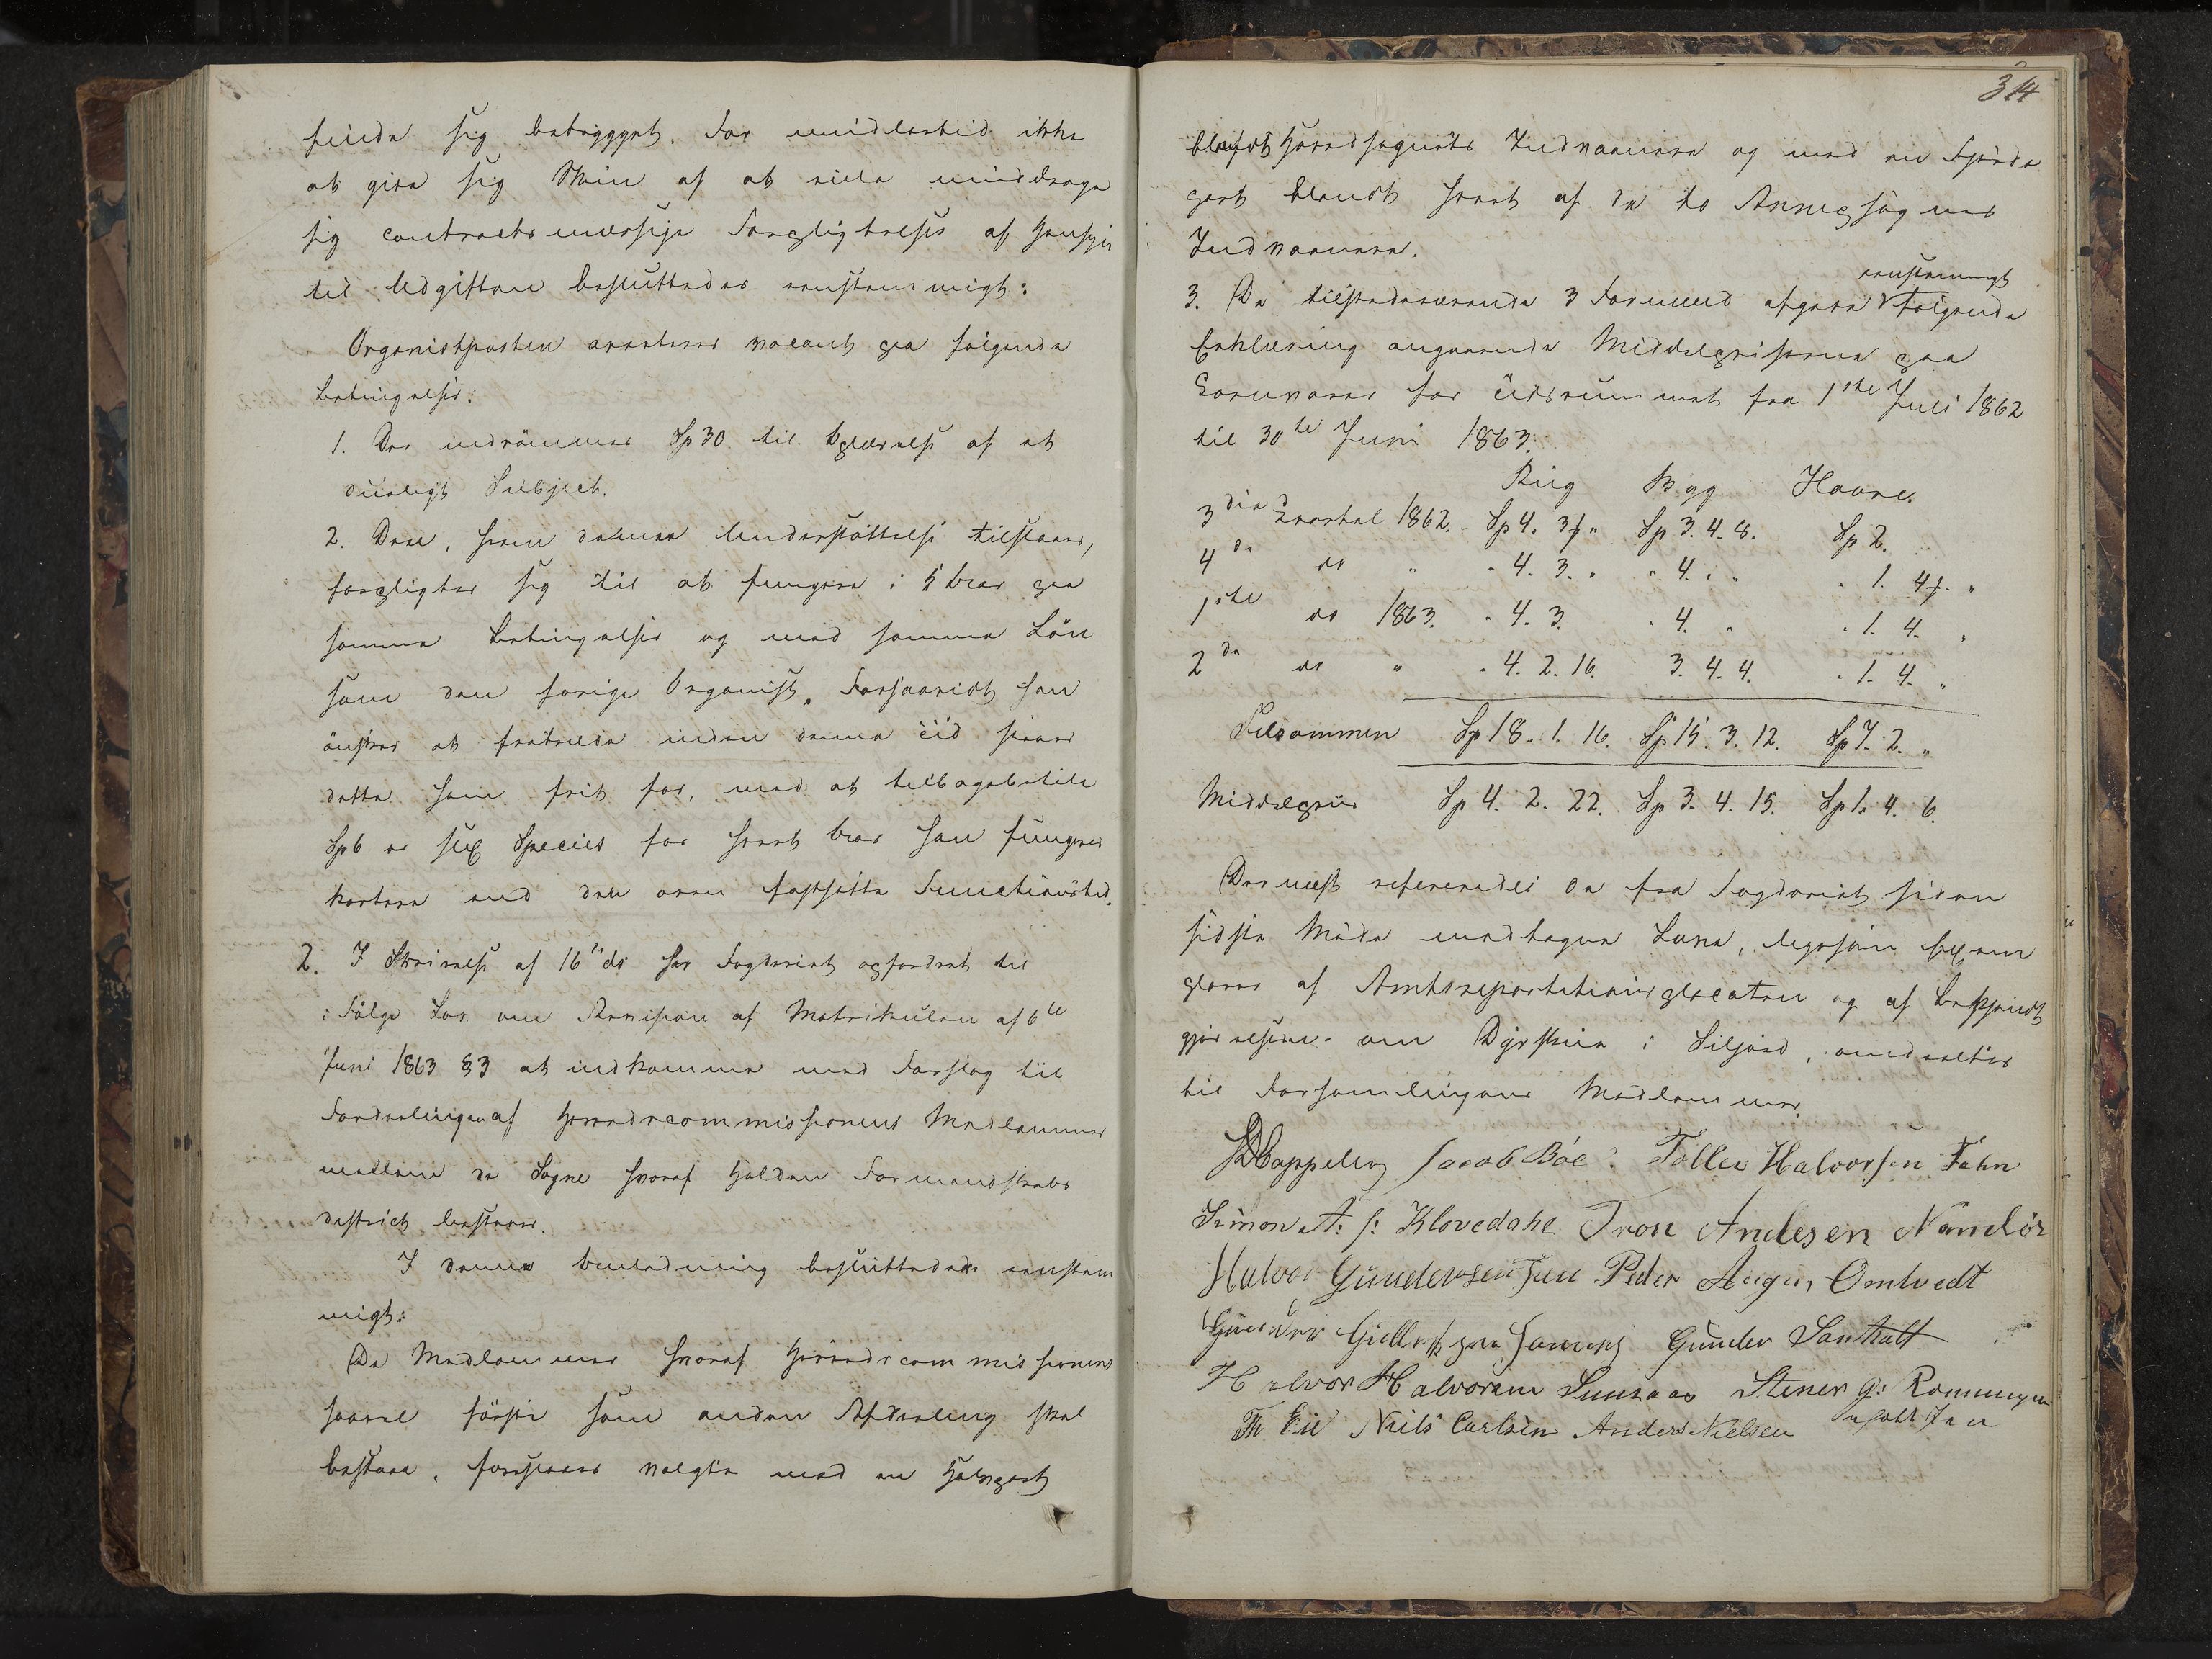 finde sig betrygget. For imidlertid ikke
at give sig Skin af at ville unddrage
sig contractsmæssige Forpligtelser af Hensyn
til Udgiften besluttedes eenstemmigt:
Organistposten averteres vacant paa følgende
Betingelser:
1. Der indrømmes Sp 30 til Oplærelse af et
dueligt Subject.
2. Den, som denne Understøttelse tilstaaes,
forpligter sig til at fungere i 5 Aar paa
samme Betingelser og med samme Løn
som den forige Organist. Forsaavidt han
ønsker at fratræde inden denne Tid staaer
dette ham frit for, med at tilbagebetale
Sp 6 er sex Species for hvert Aar han fungerer
kortere end den oven fastsatte Functionstid.
2. I Skrivelse af 16de ds har Fogderiet opfordret til
i Følge Lov om Revision af Matrikulen af 6te
Juni 1863 §3 at indkomme med Forslag til
Fordelingen af Herredscommissionens Medlemmer
mellem de Sogne hvoraf Holden Formandskabs
destrict bestaaer.
I denne Anledning besluttedes eenstem
migt:
De Medlemmer hvoraf Herredscommissionens
saavel første som anden Afdeling skal
bestaae, foreslaaes valgte med en Halvpart
314
blandt Hovedsognets Indvaanere og med en Fjerde
part blandt hvert af de to Annexsognes
Indvaanere.
eenstemmigt
3. De tilstedeværende 3 Formænd afgave følgende
Erklæring angaaende Middelpriserne paa
Kornvarer for Tidsrummet fra 1ste Juli 1862
til 30te Juni 1863:
Rug Byg Havre.
3die Qvartal 1862. Sp 4. 3 ß " Sp 3. 4. 8. Sp 2.
4de do " " 4. 3. " " 4. " " " 1. 4 ß. "
1ste do 1863. " 4. 3. " 4. " " 1. 4. "
2de do " " 4. 2. 16. 3. 4. 4. " 1. 4. "
Tilsammen Sp 18. 1. 16. Sp 15. 3. 12. Sp 7. 2. "
Middelpriis Sp 4. 2. 22. Sp 3. 4. 15. Sp 1. 4. 6.
Dernæst refereredes de fra Fogderiet siden
sidste Møde modtagne Love, ligesom Exem
plarer af Amtsrepartitionsplacaten og af Bekjendt
gjørelsen om Dyrskue i Siljord, omdeeltes
til Forsamlingens Medlemmer.
Cappelen Jacob Bøe. Tollev Halvorsen Fehn
Simon A: s: Klovedahl Tron Andesen Namløs
Halvor Gundersen Peder Aagen Omtvedt
Gunder Gunder Santhalt
Halvor Halvorsen Sunsaas Stener G: Ronningen
Th Lie Niels Carlsen Anders Nielsen